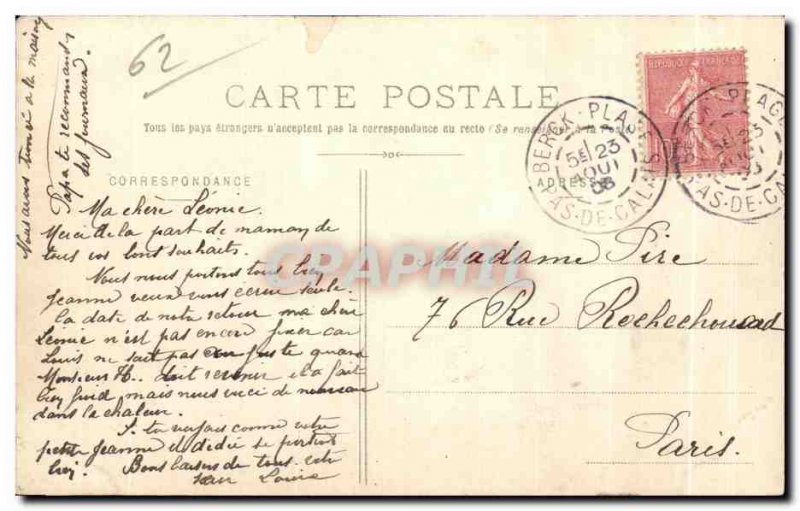 62
CARTE POSTALE
Tous les pays étrangers n'acceptent pas la correspondance au recto (Se renseigner à la Poste)
CORRESPONDANCE
ADRESSE
REPUBLIQUE FRANÇAISE
BERCK-PLAGE
5E 23
AOUT
PAS-DE-CALAIS
BERCK-PLAGE
5E 23
AOUT
PAS-DE-CALAIS
Nous avons à la maison
Papa te recommande
ses journaux.
Ma chère Léonie.
Merci de la part de maman de
tous vos bons souhaits.
Nous nous portons tous bien
Jeanne veux vous écrire seule.
la date de notre retour ma chère
Léonie n'est pas encore fixer car
Louis ne sait pas au juste quand
Monsieur H.. doit revenir il a fait
bien froid mais nous voici de nouveau
dans la chaleur.
Si tu voyais comme votre
petite Jeanne et dédé se portent
bien. Bons baisers de tous votre
sœur Louise
Madame Pire
76 Rue Rochechouard
Paris.
CPAPHIL